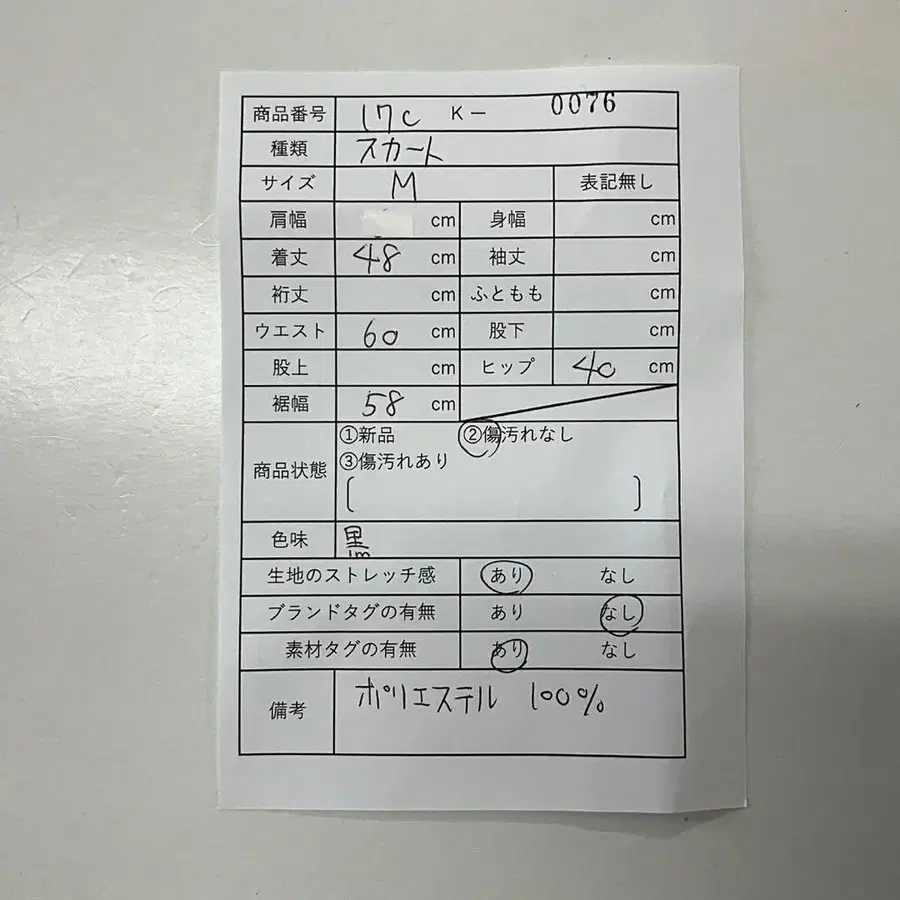 商品番号 17c K― 0076
種類 スカート
サイズ M 表記無し
肩幅 cm 身幅 cm
着丈 48 cm 袖丈 cm
裄丈 cm ふともも cm
ウエスト 60 cm 股下 cm
股上 cm ヒップ 40 cm
裾幅 58 cm
①新品 ②傷汚れなし
商品状態 ③傷汚れあり
[ ]
色味 黒
生地のストレッチ感 あり なし
ブランドタグの有無 あり なし
素材タグの有無 あり なし
備考 ポリエステル 100%